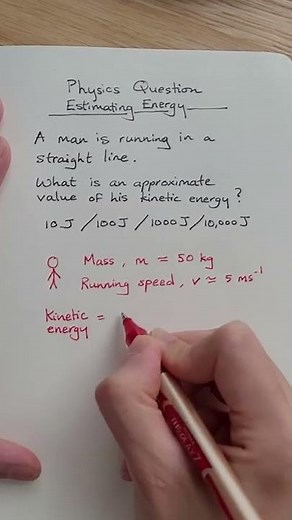 Physics Question
Estimating Energy
A man is running in a
straight line.
What is an approximate
value of his kinetic energy?
10 J / 100 J / 1000 J / 10,000 J
Mass, m ≈ 50 kg
Running speed, v ≃ 5 ms⁻¹
Kinetic =
energy